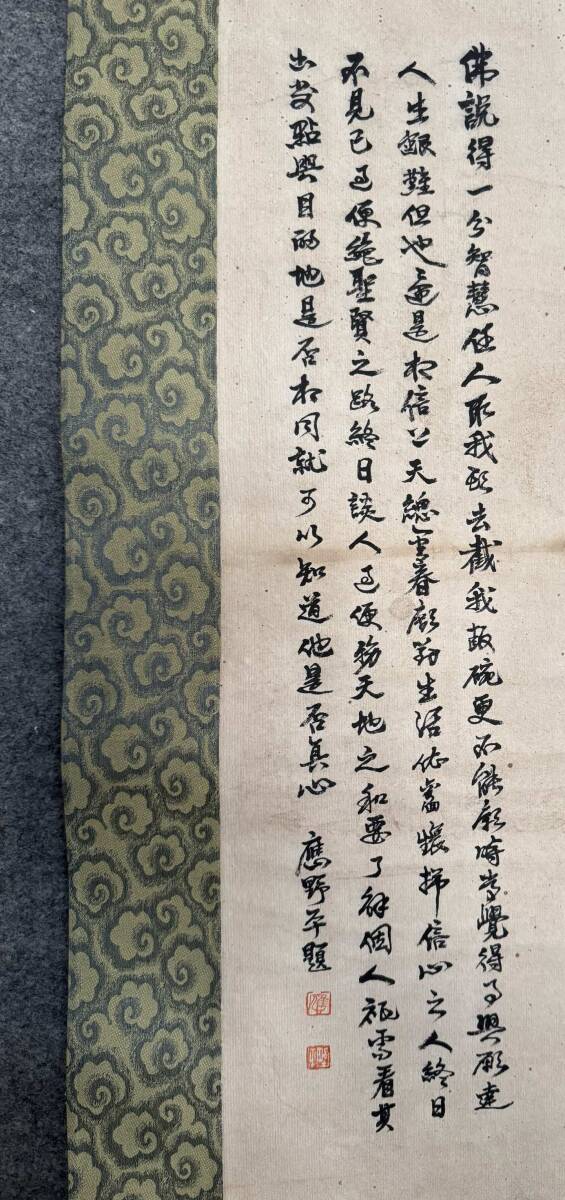 佛說得一分智慧任人取我頭去截我頭碗更不能願時常覺得事與願違
人生艱難但也還是相信上天總會眷顧對生活依舊懷揣信心之人終日
不見己過便絕聖賢之路終日談人過便傷天地之和要了解個人祇需看其
出發點與目的地是否相同就可以知道他是否真心 應野平題